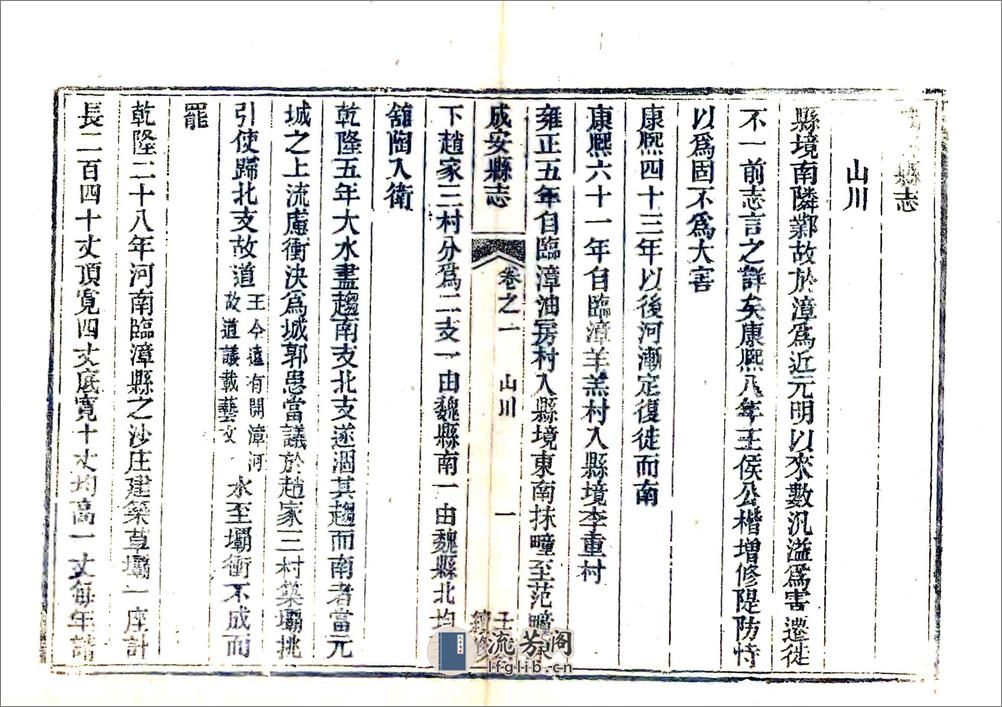 縣志
山川
縣境南隣鄴故於漳爲近元明以來數汎溢爲害遷徙
不一前志言之詳矣康熙八年王侯公楷增修隄防恃
以爲固不爲大害
康熙四十三年以後河漸定復徙而南
康熙六十一年自臨漳羊羔村入縣境李重村
雍正五年自臨漳油房村入縣境東南抹疃至范疃
成安縣志 卷之一 山川 一
下趙家三村分爲二支一由魏縣南一由魏縣北均
舘陶入衛
乾隆五年大水盡趨南支北支遂涸其趨而南者當元
城之上流慮衝決爲城郭患當議於趙家三村築壩挑
引使歸北支故道 王令遠有開漳河故道議載藝文 水至壩衝不成而
罷
乾隆二十八年河南臨漳縣之沙庄建築草壩一座計
長二百四十丈頂寛四丈底寛十丈均高一丈每年
流芳阁
lfglib.cn